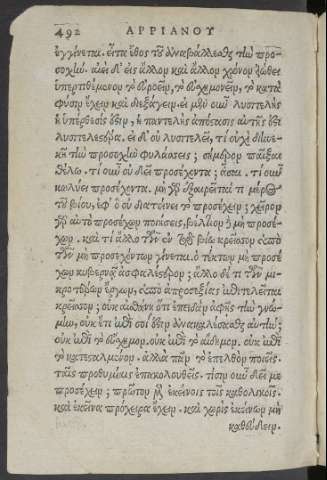 492 ΑΡΡΙΑΝΟΥ
ἐγγένεται. εἶτα ἔθος τοῦ ἀναβάλλεσθαι τὴν προ-
σοχὴν. ἀεὶ δ' εἰς ἄλλον καὶ ἄλλον χρόνον εἴωθας
ὑπερτιθέμενον τὸ εὐροεῖν, τὸ εὐσχημονεῖν, τὸ κατὰ
φύσιν ἔχειν καὶ διεξάγειν. εἰ μὲν οὖν λυσιτελὴς
ἡ ὑπέρθεσίς ἐστιν, ἡ παντελὴς ἀπόστασις αὐτῆς ἐστὶ
λυσιτελεστέρα. εἰ δ' οὐ λυσιτελεῖ, τί οὐχὶ διηνε-
κῆ τὴν προσοχὴν φυλάσσεις; σήμερον παῖξαι
θέλω. τί οὖν οὐ δεῖ προσέχοντα; ᾆσαι. τί οὖν
κωλύει προσέχοντα. μὴ γὰρ ἐξαιρεῖταί τι μέρος
τοῦ βίου, ἐφ' ὃ οὐ διατείνει τὸ προσέχειν; χεῖρον
γὰρ αὐτὸ προσέχων ποιήσεις, βέλτιον δὲ μὴ προσέ-
χων. καὶ τί ἄλλο τῶν ἐν τῷ βίῳ κρεῖσσον ὑπὸ
τῶν μὴ προσεχόντων γίνεται. ὁ τέκτων μὴ προσέ
χων κυβερνᾷ ἀσφαλέστερον; ἄλλο δέ τι τῶν μι-
κροτέρων ἔργων, ὑπὸ ἀπροσεξίας ἐπιτελεῖται
κρεῖσσον; οὐκ αἰσθάνῃ ὅτι ἐπειδὰν ἀφῇς τὴν γνώ-
μην, οὐκ ἔτι ἐπὶ σοί ἐστιν ἀνακαλέσασθαι αὐτὴν;
οὐκ ἐπὶ τὸ εὔσχημον. οὐκ ἐπὶ τὸ αἰδῆμον. οὐκ ἐπὶ
τὸ κατεσταλμένον. ἀλλὰ πᾶν τὸ ἐπελθὸν ποιεῖς.
ταῖς προθυμίαις ἐπακολουθεῖς. τίσιν οὖν δεῖ με
προσέχειν; πρῶτον μὲν ἐκείνοις τοῖς καθολικοῖς.
καὶ ἐκεῖνα πρόχειρα ἔχειν. καὶ χωρὶς ἐκείνων μὴ
καθεύδειν.